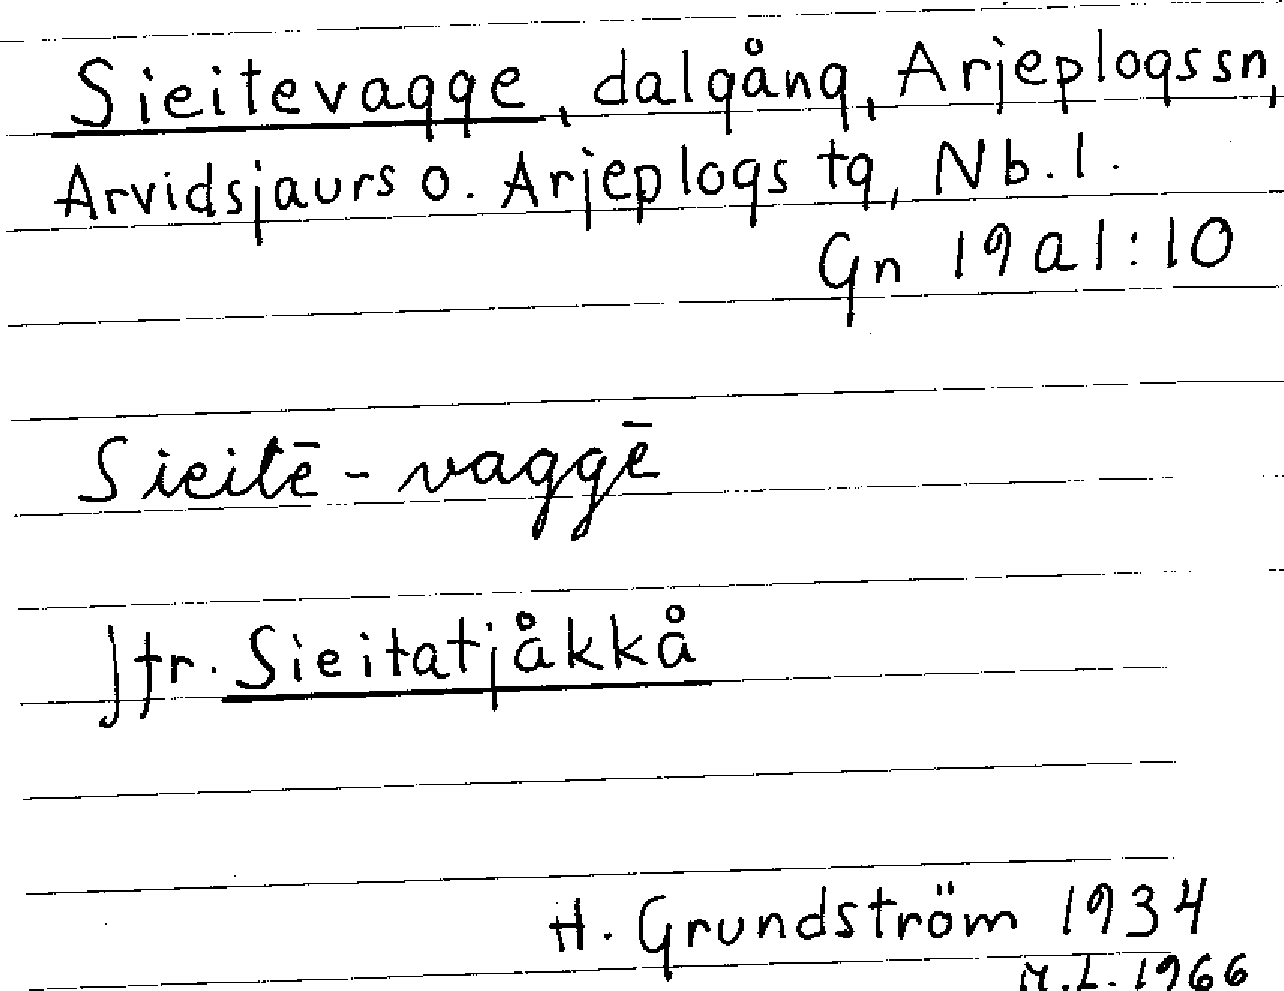 Sieitevagge, dalgång, Arjeplogssn,
Arvidsjaurs o. Arjeplogs tg, Nb. l.
Gn 19 a 1:10
Sieitē - vaggē
Jfr. Sieitatjåkkå
H. Grundström 1934
M.L. 1966